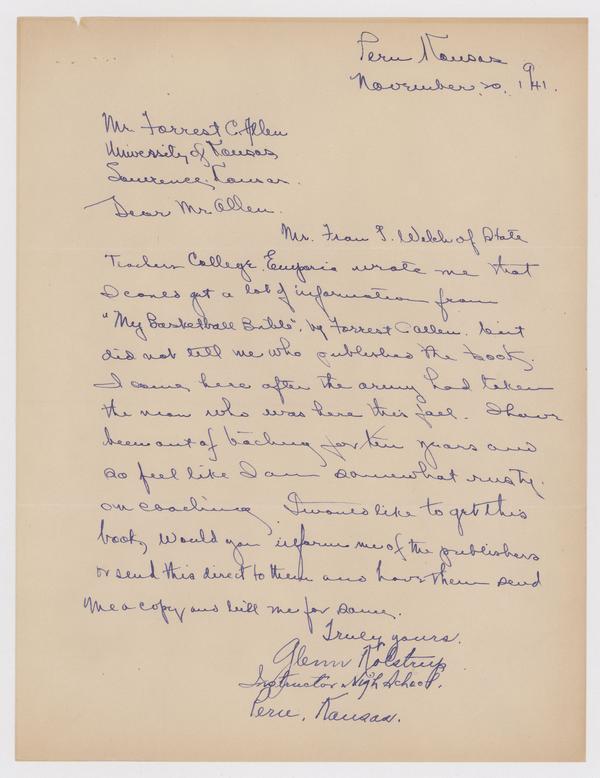 Peru Kansas
November 20, 1941.
Mr. Forrest C. Allen
University of Kansas
Lawrence, Kansas.
Dear Mr. Allen.
Mr. Fran T. Welch of State
Teachers College, Emporia wrote me that
I could get a lot of information from
"My Basketball Bible", by Forrest C Allen. but
did not tell me who published the book.
I came here after the army had taken
the man who was here this fall. I have
been out of teaching for ten years and
so feel like I am somewhat rusty.
on coaching. I would like to get this
book, would you inform me of the publishers
or send this direct to them and have them send
me a copy and bill me for same.
Truly yours.
Glenn
Instructor High School.
Peru, Kansas.